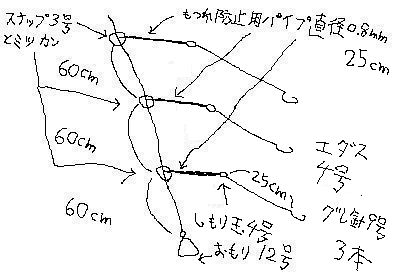 スナップ3号
とミツカン
もつれ防止用パイプ直径0.8mm
25cm
60cm
60cm
60cm
エダス
4号
25cm
グレ針9号
3本
しもり玉4号
おもり12号